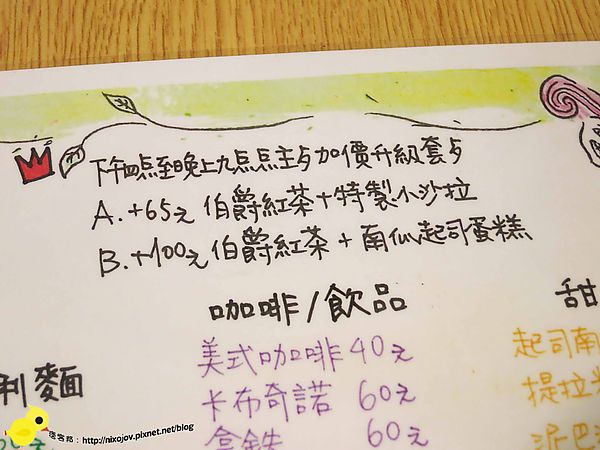 下午四点至晚上九点点主歺加價升級套歺
A.+65元 伯爵紅茶+特製小沙拉
B.+100元 伯爵紅茶 + 南仏起司蛋糕
咖啡/飲品
甜
美式咖啡 40元
起司南
利麵
卡布奇諾 60元
提拉米
拿鉄 60元
泥巴
痞客邦：http://nixojov.pixnet.net/blog